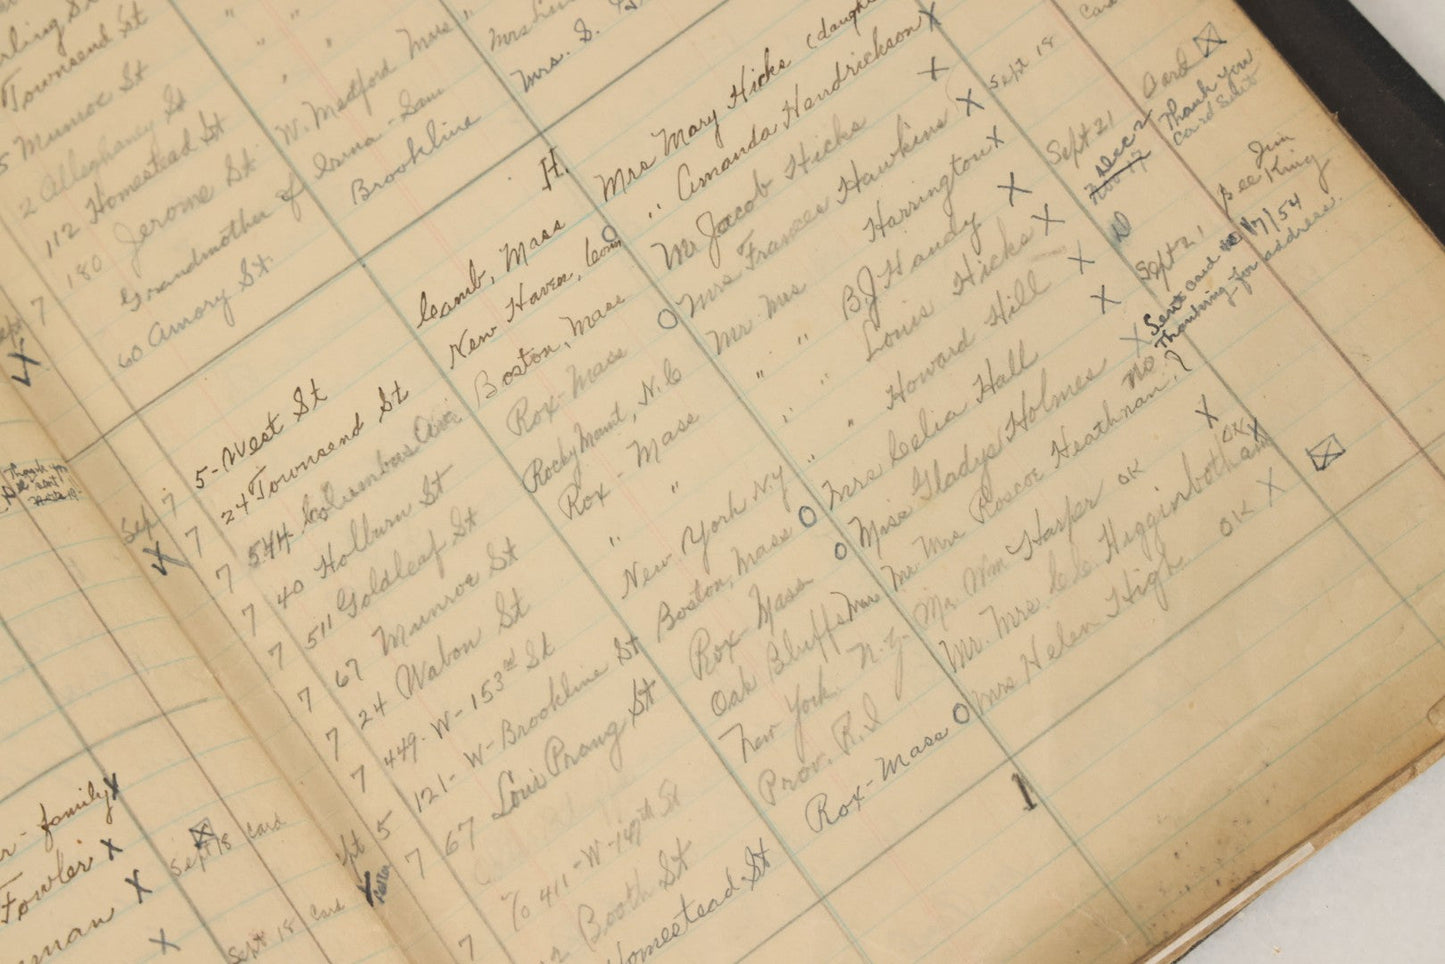 Townsend St
Munroe St
2 Alleghaney St
112 Homestead St
180 Jerome St W. Medford Mass
Grandmother of Irma - Sam
60 Amory St. Brookline
Mrs. S.
H.
7 5 - West St Camb, Mass Mrs Mary Hicks (daughter
7 24 Townsend St New Haven, Conn " Amanda Hendrickson X
7 544 Columbus Ave Boston, Mass Mr Jacob Hicks X
7 40 Hollburn St Rox - Mass Mrs Frances Hawkins X Sept 18
7 511 Goldleaf St Rocky Mount, N.C Mr. Mrs Harrington X
7 67 Munroe St Rox - Mass " " B.J. Handy X Sept 21
7 24 Wabon St " " " Louis Hicks X
7 449 - W - 153rd St New York N.Y " " Howard Hill X
5 121 - W - Brookline St Boston, Mass Mrs Celia Hall X
7 67 Loui Prang St Rox - Mass Miss Gladys Holmes X
Oak Bluffs Mass Mr Mrs Roscoe Heathman. ?
411 - W - 147th St New York N.Y. Mr Wm Harper OK X
Booth St Prov. R.I Mr. Mrs. C.C. Higginbotham OK X
Homestead St Rox - Mass Mrs Helen High OK X
Card
Thank you
Card Sent
Dec 2
Sept 21
See Jim
King
Sent card 1/7/54
Thanking for address.
no
Sept
Sep
1
family X
Fowler X
X
Sept 18 Card
Sept 18 Card
X